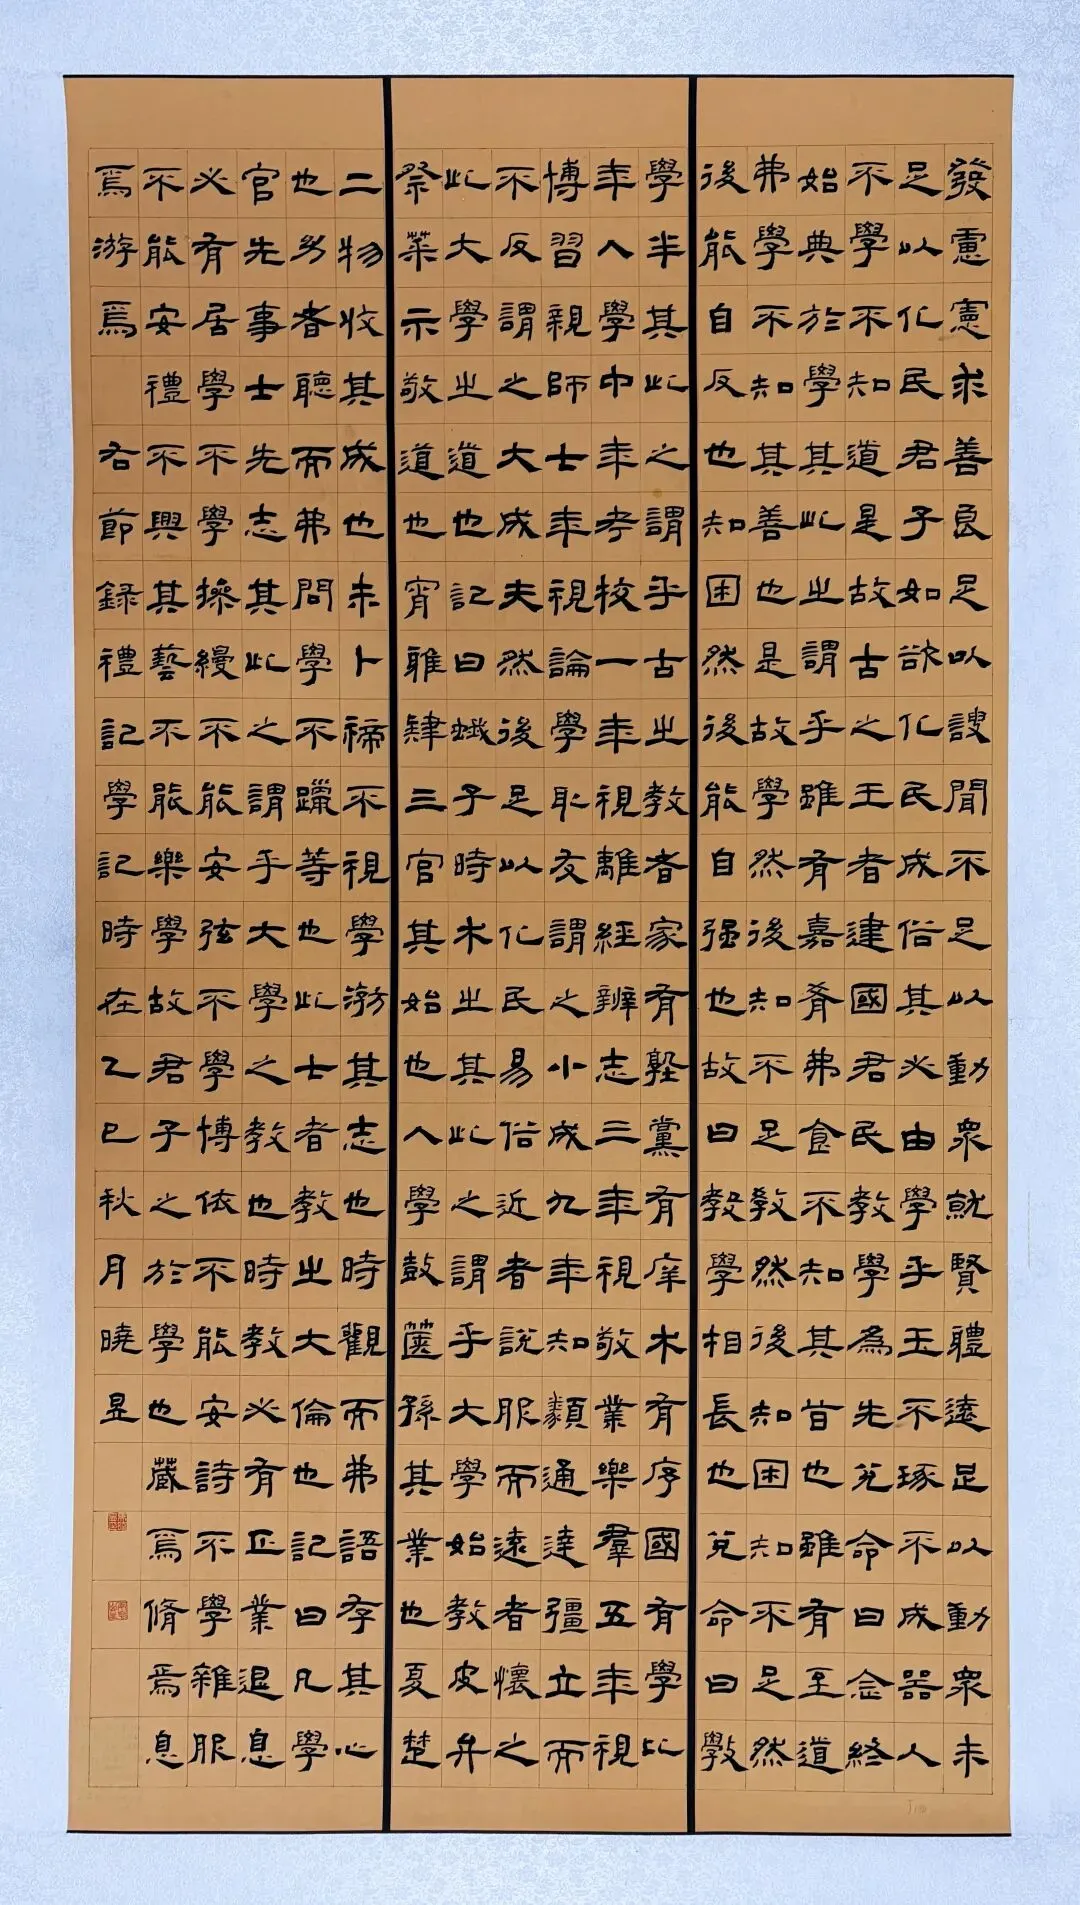 發慮憲求善良足以謏聞不足以動衆就賢體遠足以動衆未
足以化民君子如欲化民成俗其必由學乎玉不琢不成器人
不學不知道是故古之王者建國君民教學為先兌命曰念終
始典於學其此之謂乎雖有嘉肴弗食不知其旨也雖有至道
弗學不知其善也是故學然後知不足教然後知困知不足然
後能自反也知困然後能自强也故曰教學相長也兌命曰斆
學半其此之謂乎古之教者家有塾黨有庠术有序國有學比
年入學中年考校一年視離經辨志三年視敬業樂羣五年視
博習親師七年視論學取友謂之小成九年知類通達彊立而
不反謂之大成夫然後足以化民易俗近者說服而遠者懷之
此大學之道也記曰蛾子時术之其此之謂乎大學始教皮弁
祭菜示敬道也宵雅肄三官其始也入學鼓篋孫其業也夏楚
二物收其成也未卜禘不視學游其志也時觀而弗語存其心
也幼者聽而弗問學不躐等也此士者教之大倫也記曰凡學
官先事士先志其此之謂乎大學之教也時教必有正業退息
必有居學不學操縵不能安弦不學博依不能安詩不學雜服
不能安禮不興其藝不能樂學故君子之於學也藏焉脩焉息
焉游焉 右節錄禮記學記時在乙巳秋月曉昱